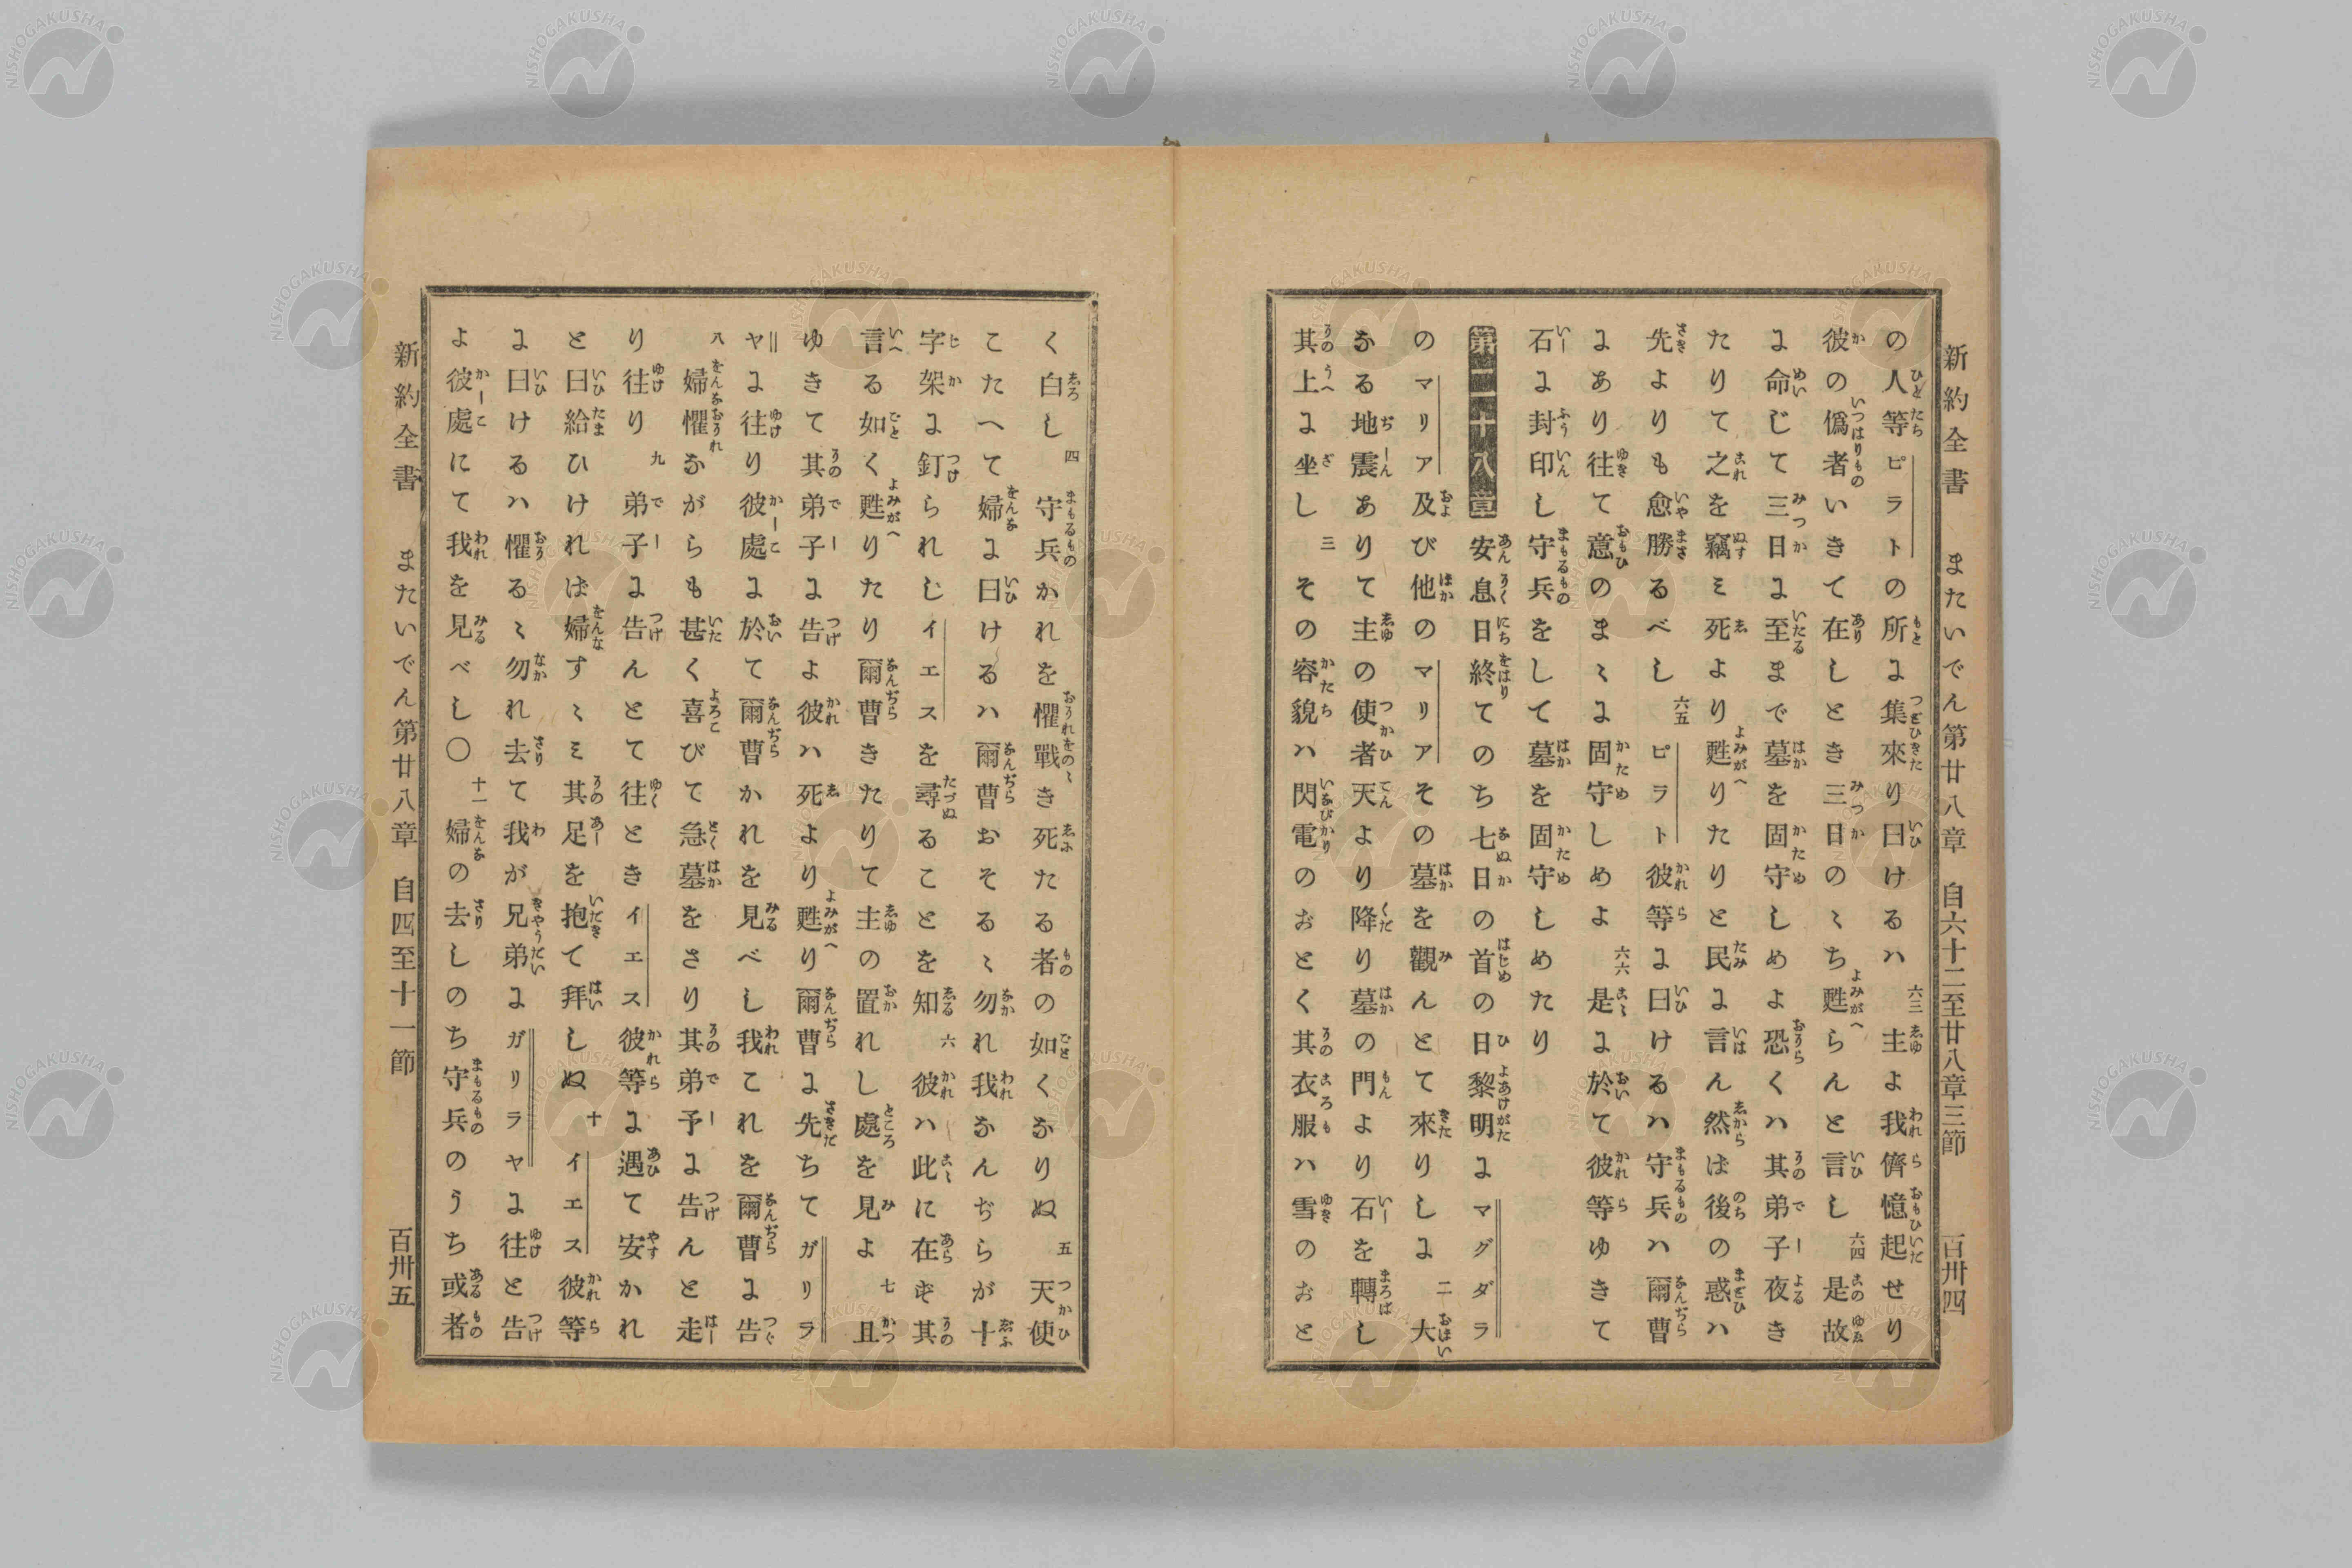 新約全書 またいでん第廿八章 自六十二至廿八章三節 百卅四
の人等ピラトの所に集來り曰けるハ 六三 主よ我儕憶起せり
彼の僞者いきて在しとき三日のゝち甦らんと言し 六四 是故
に命じて三日に至まで墓を固守しめよ恐くハ其弟子夜き
たりて之を竊ミ死より甦りたりと民に言ん然ば後の惑ハ
先よりも愈勝るべし 六五 ピラト彼等に曰けるハ守兵ハ爾曹
にあり往て意のまゝに固守しめよ 六六 是に於て彼等ゆきて
石に封印し守兵をして墓を固守しめたり
第二十八章 安息日終てのち七日の首の日黎明にマグダラ
のマリア及び他のマリアその墓を觀んとて來りしに 二 大
なる地震ありて主の使者天より降り墓の門より石を轉し
其上に坐し 三 その容貌ハ閃電のごとく其衣服ハ雪のごと
く白し 四 守兵かれを懼戰き死たる者の如くなりぬ 五 天使
こたへて婦に曰けるハ爾曹おそるゝ勿れ我なんぢらが十
字架に釘られしイエスを尋ることを知 六 彼ハ此に在ず其
言る如く甦りたり爾曹きたりて主の置れし處を見よ 七 且
ゆきて其弟子に告よ彼ハ死より甦り爾曹に先ちてガリラ
ヤに往り彼處に於て爾曹かれを見べし我これを爾曹に告
八 婦懼ながらも甚く喜びて急墓をさり其弟子に告んと走
り往り 九 弟子に告んとて往ときイエス彼等に遇て安かれ
と曰給ひければ婦すゝミ其足を抱て拜しぬ 十 イエス彼等
に曰けるハ懼るゝ勿れ去て我が兄弟にガリラヤに往と告
よ彼處にて我を見べし〇 十一 婦の去しのち守兵のうち或者
新約全書 またいでん第廿八章 自四至十一節 百卅五
NISHOGAKUSHA